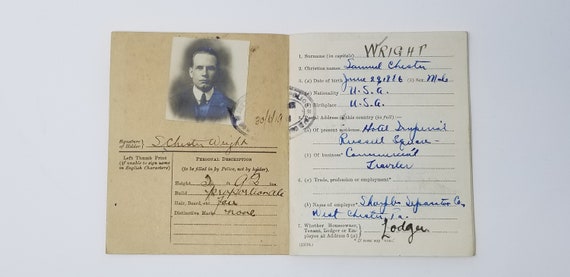 30/6/19
Signature of Holder: S. Chester Wright
Left Thumb Print
(if unable to sign name
in English Characters)
PERSONAL DESCRIPTION
(to be filled in by Police, not by holder).
Height
Build proportionate
Hair, Beard, etc. fair
Distinctive Marks none
1. Surname (in capitals) WRIGHT
2. Christian names Samuel Chester
3. (a) Date of birth June 23, 1886 Sex Male
(b) Nationality U.S.A.
(c) Birthplace U.S.A.
Address in this country (in full):—
Of present residence Hotel Imperial
Russell Square
(b) Of business Commercial
Traveler
Trade, profession or employment
(b) Name of employer Sharples Separator Co.
West Chester, Pa.
7. Whether Householder,
Tenant, Lodger or Em-
ployee at Address 5 (a) Lodger